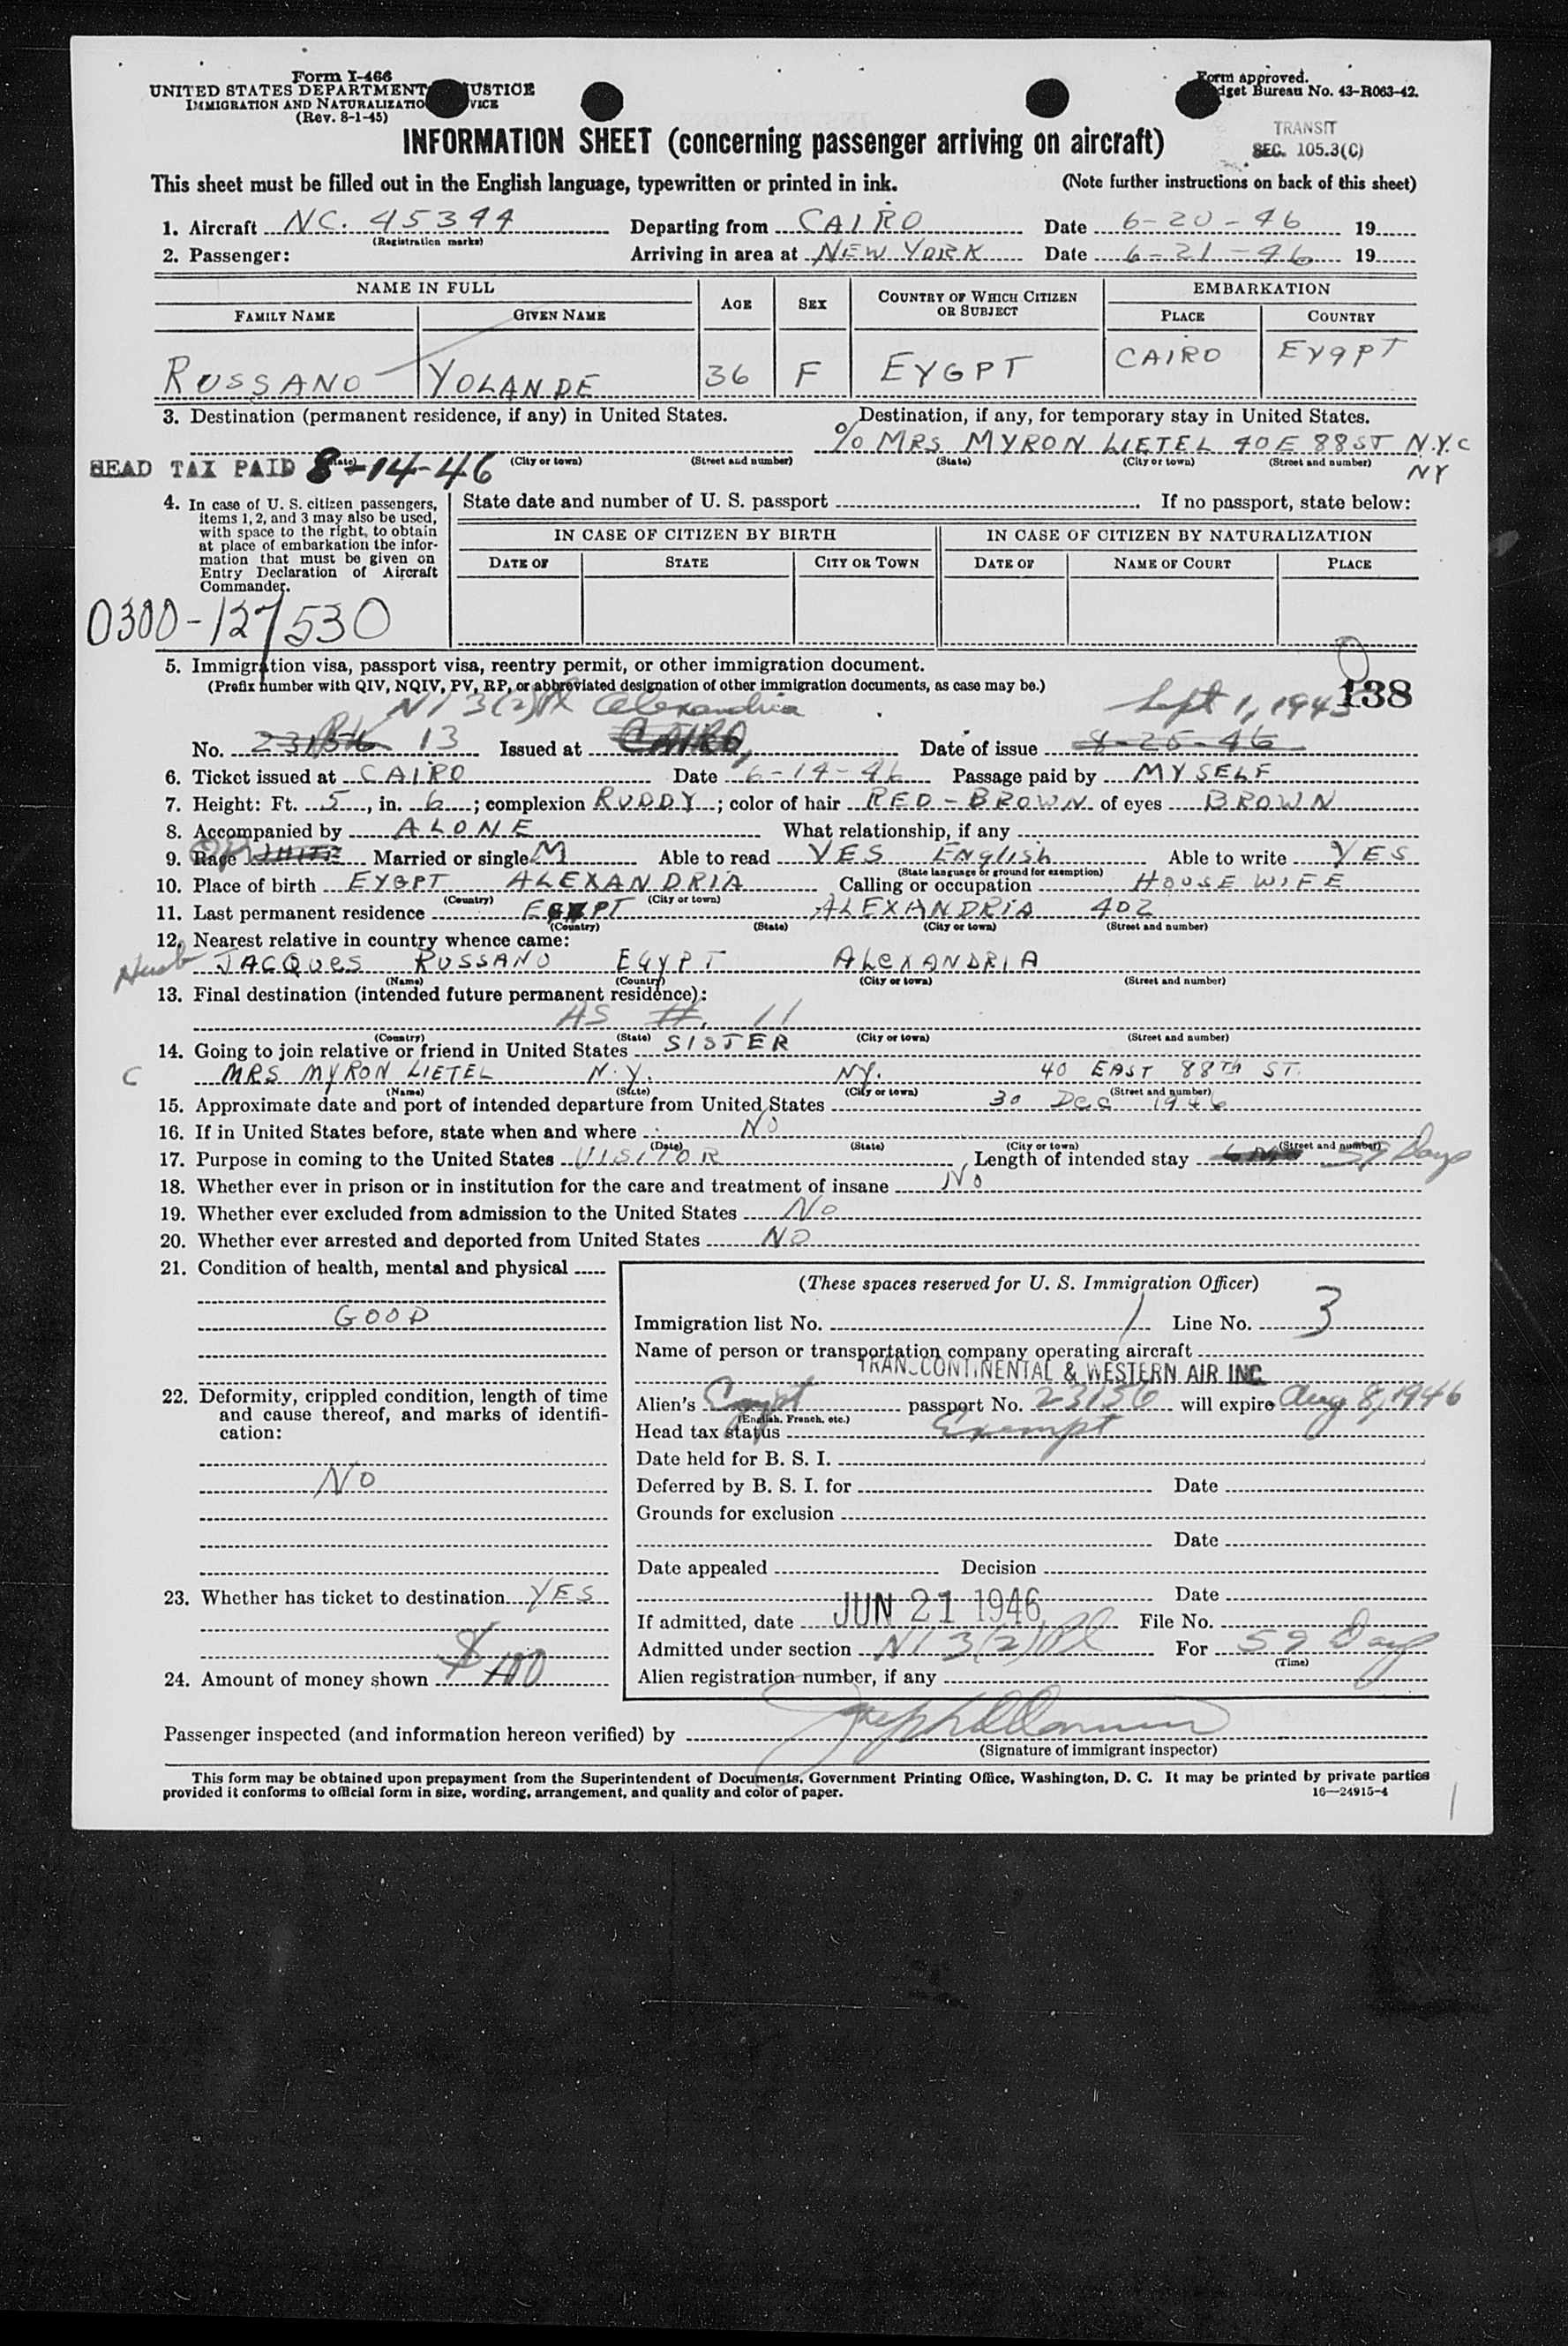 Form I-466
UNITED STATES DEPARTMENT JUSTICE
IMMIGRATION AND NATURALIZATIO VICE
(Rev. 8-1-45)
Form approved.
dget Bureau No. 43-R063-42.
INFORMATION SHEET (concerning passenger arriving on aircraft)
TRANSIT
SEC. 105.3(C)
This sheet must be filled out in the English language, typewritten or printed in ink. (Note further instructions on back of this sheet)
1. Aircraft NC. 45344 Departing from CAIRO Date 6-20-46 19
(Registration marks)
2. Passenger: Arriving in area at NEW YORK Date 6-21-46 19
NAME IN FULL AGE SEX COUNTRY OF WHICH CITIZEN OR SUBJECT EMBARKATION
FAMILY NAME GIVEN NAME PLACE COUNTRY
RUSSANO YOLANDE 36 F EYGPT CAIRO EYGPT
3. Destination (permanent residence, if any) in United States. Destination, if any, for temporary stay in United States.
% MRS MYRON LIETEL 40 E 88 ST N.Y.C
NY
HEAD TAX PAID 8-14-46 (City or town) (Street and number) (State) (City or town) (Street and number)
4. In case of U. S. citizen passengers, items 1, 2, and 3 may also be used, with space to the right, to obtain at place of embarkation the information that must be given on Entry Declaration of Aircraft Commander.
State date and number of U. S. passport If no passport, state below:
IN CASE OF CITIZEN BY BIRTH IN CASE OF CITIZEN BY NATURALIZATION
DATE OF STATE CITY OR TOWN DATE OF NAME OF COURT PLACE
0300-127530
5. Immigration visa, passport visa, reentry permit, or other immigration document.
(Prefix number with QIV, NQIV, PV, RP, or abbreviated designation of other immigration documents, as case may be.)
138
3(2) Alexandria Sept 1, 1945
No. 23156 13 Issued at CAIRO, Date of issue 8-25-46
6. Ticket issued at CAIRO Date 6-14-46 Passage paid by MYSELF
7. Height: Ft. 5, in. 6; complexion RUDDY; color of hair RED-BROWN of eyes BROWN
8. Accompanied by ALONE What relationship, if any
9. Race WHITE Married or single M Able to read YES English Able to write YES
(State language or ground for exemption)
10. Place of birth EYGPT ALEXANDRIA Calling or occupation HOUSE WIFE
(Country) (City or town)
11. Last permanent residence EGYPT ALEXANDRIA 402
(Country) (State) (City or town) (Street and number)
12. Nearest relative in country whence came:
Husb JACQUES RUSSANO EGYPT ALEXANDRIA
(Name) (Country) (City or town) (Street and number)
13. Final destination (intended future permanent residence):
AS #. 11
(Country) (State) (City or town) (Street and number)
14. Going to join relative or friend in United States SISTER
C MRS MYRON LIETEL N.Y. NY. 40 EAST 88Th ST.
(Name) (State) (City or town) (Street and number)
15. Approximate date and port of intended departure from United States 30 Dec 1946
16. If in United States before, state when and where NO
(Date) (State) (City or town) (Street and number)
17. Purpose in coming to the United States VISITOR Length of intended stay 59 Days
18. Whether ever in prison or in institution for the care and treatment of insane No
19. Whether ever excluded from admission to the United States No
20. Whether ever arrested and deported from United States NO
21. Condition of health, mental and physical
GOOD
22. Deformity, crippled condition, length of time and cause thereof, and marks of identification:
NO
23. Whether has ticket to destination YES
24. Amount of money shown $100
(These spaces reserved for U. S. Immigration Officer)
Immigration list No. 1 Line No. 3
Name of person or transportation company operating aircraft
TRANSCONTINENTAL & WESTERN AIR INC.
Alien's Egypt passport No. 23156 will expire Aug 8, 1946
(English, French, etc.)
Head tax status Exempt
Date held for B. S. I.
Deferred by B. S. I. for Date
Grounds for exclusion
Date
Date appealed Decision
Date
If admitted, date JUN 21 1946 File No.
Admitted under section 3(2) For 59 Days
(Time)
Alien registration number, if any
Passenger inspected (and information hereon verified) by
(Signature of immigrant inspector)
This form may be obtained upon prepayment from the Superintendent of Documents, Government Printing Office, Washington, D. C. It may be printed by private parties
provided it conforms to official form in size, wording, arrangement, and quality and color of paper. 16—24915-4